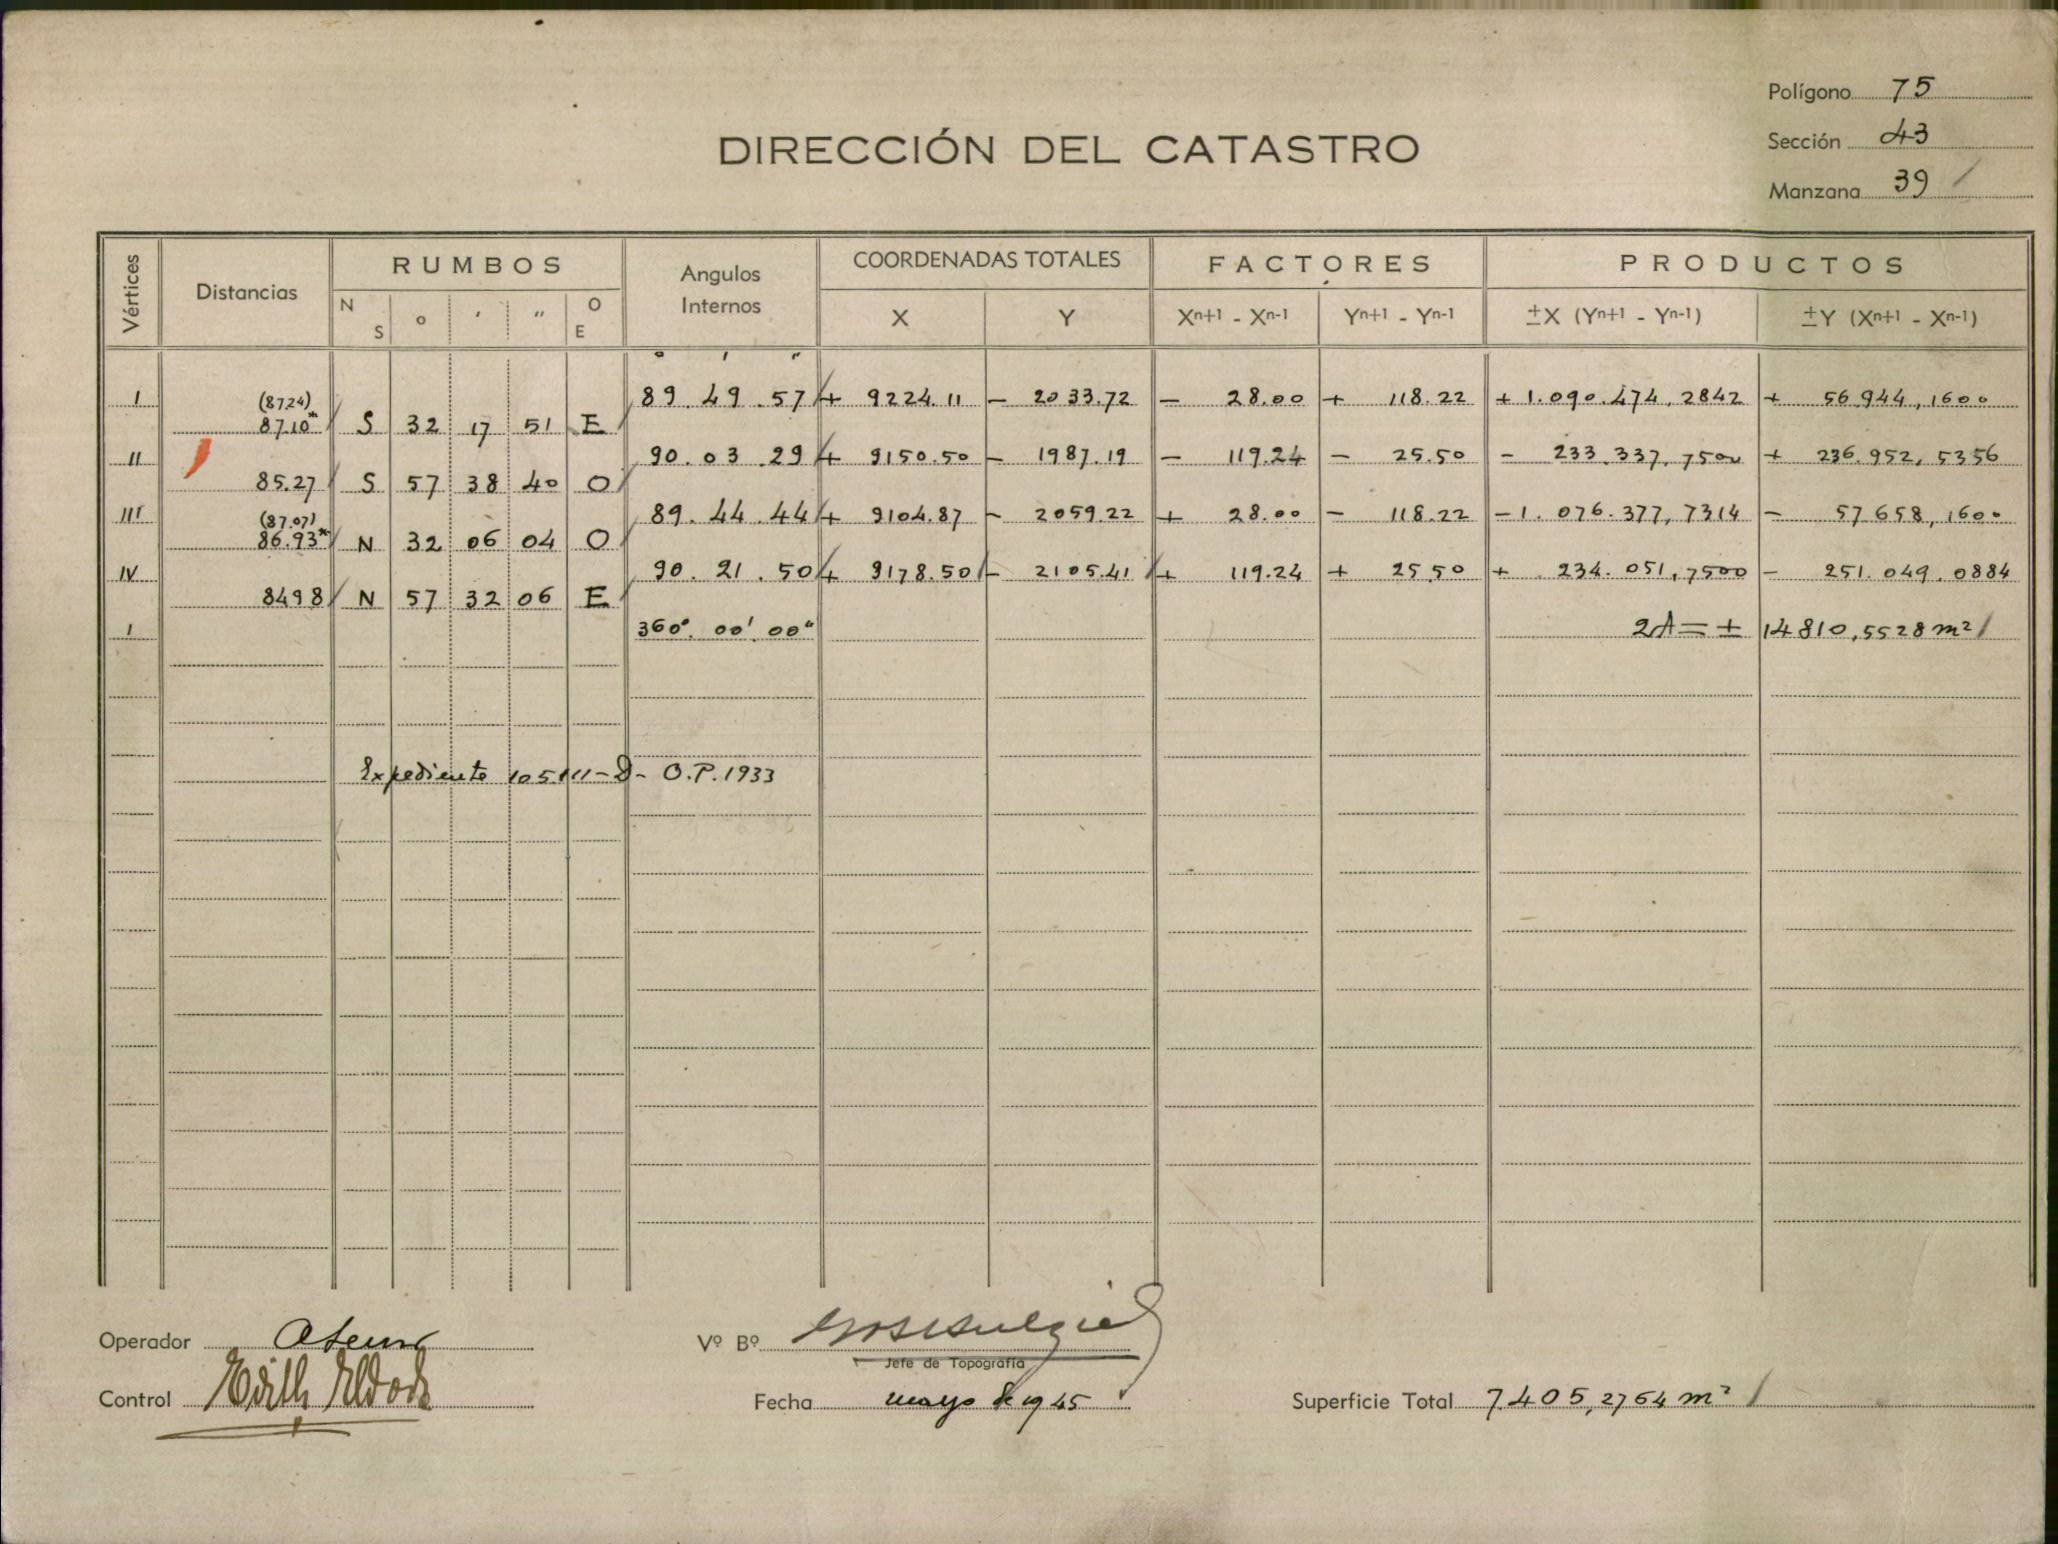 Polígono 75
DIRECCIÓN DEL CATASTRO
Sección 43
Manzana 39 /
Vértices Distancias RUMBOS Angulos Internos COORDENADAS TOTALES FACTORES PRODUCTOS
N S o ' " O E X Y Xn+1 - Xn-1 Yn+1 - Yn-1 ±X (Yn+1 - Yn-1) ±Y (Xn+1 - Xn-1)
o ' "
I (87.24) 89.49.57 + 9224.11 - 2033.72 - 28.00 + 118.22 + 1.090.474,2842 + 56.944,1600
87.10* S 32 17 51 E
II 90.03.29 + 9150.50 - 1987.19 - 119.24 - 25.50 - 233.337,7500 + 236.952,5356
85.27 S 57 38 40 O
III (87.07) 89.44.44 + 9104.87 - 2059.22 + 28.00 - 118.22 - 1.076.377,7314 - 57.658,1600
86.93* N 32 06 04 O
IV 90.21.50 + 9178.50 - 2105.41 + 119.24 + 25.50 + 234.051,7500 - 251.049.0884
84.98 N 57 32 06 E
I 360°.00'.00" 2A = ± 14810,5528 m² /
Expediente 105.111-D- O.P.1933
Operador
Vº Bº
Jefe de Topografía
Control Edith
Fecha mayo de 1945
Superficie Total 7.405,2764 m² /